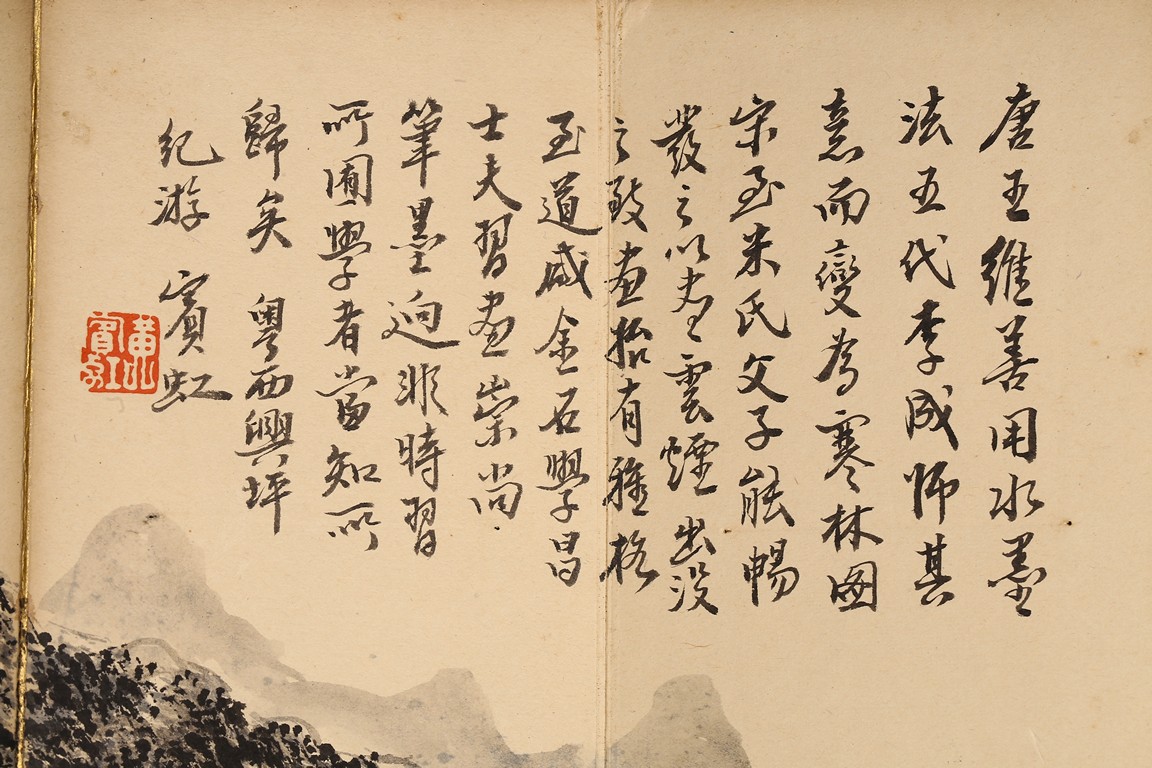 唐王維善用水墨
法五代李成師其
意而變為寒林圖
宋至米氏父子能暢
發之以盡雲煙出沒
之致畫始有雅格
至道咸金石學昌
士夫習畫崇尚
筆墨迥非時習
所囿學者當知所
歸矣 粵西興坪
紀游 賓虹
黃山賓虹